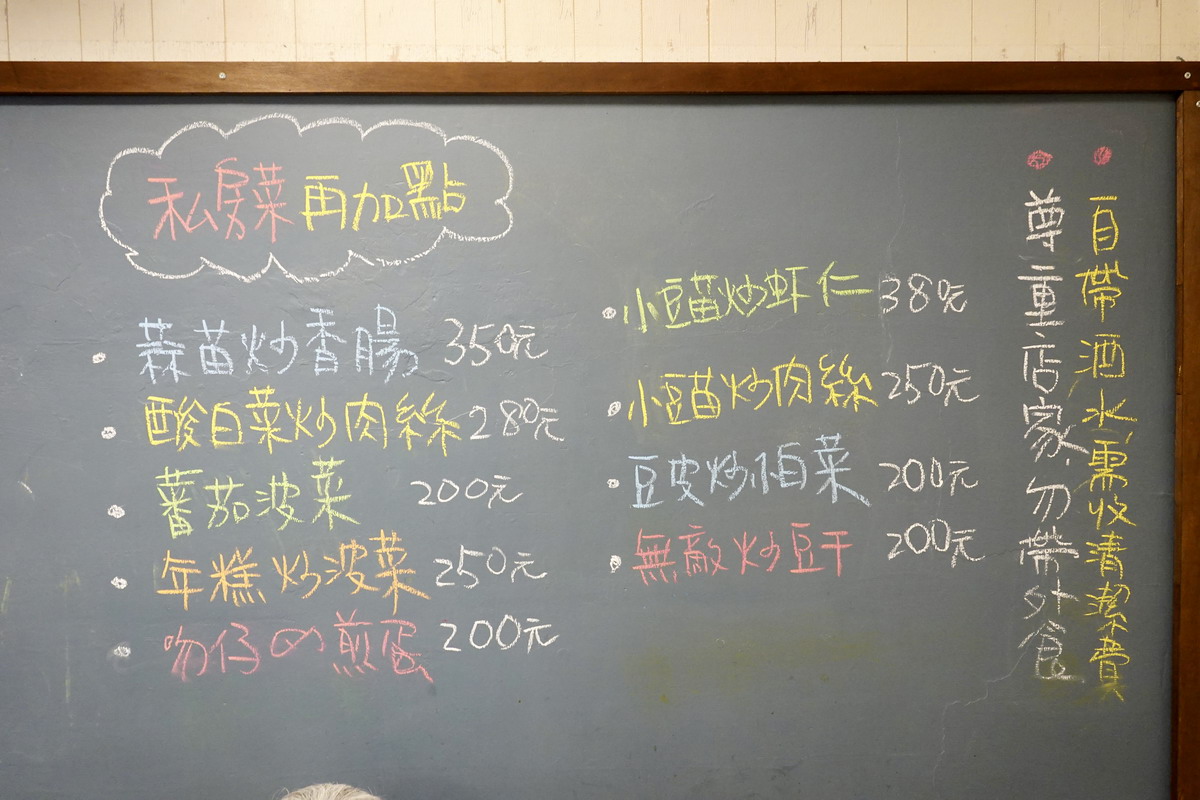 私房菜再加點
蒜苗炒香腸 350元
酸白菜炒肉絲 280元
蕃茄波菜 200元
年糕炒波菜 250元
吻仔の煎蛋 200元
小豆苗炒虾仁 380元
小豆苗炒肉絲 250元
豆皮炒伯菜 200元
無敵炒豆干 200元
自帶酒水需收清潔費
尊重店家.勿帶外食